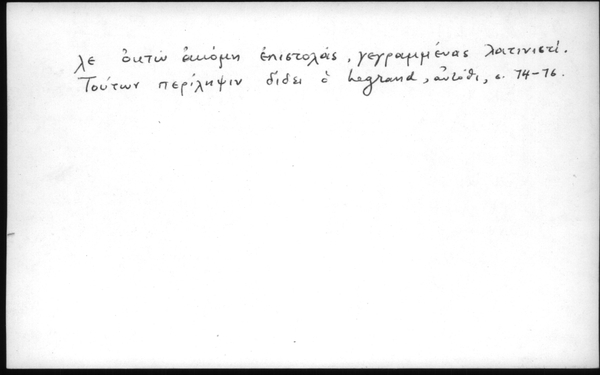 λε ὀκτὼ ἀκόμη ἐπιστολάς, γεγραμμένας λατινιστί.
Τούτων περίληψιν δίδει ὁ Legrand, αὐτόθι, σ. 74-76.